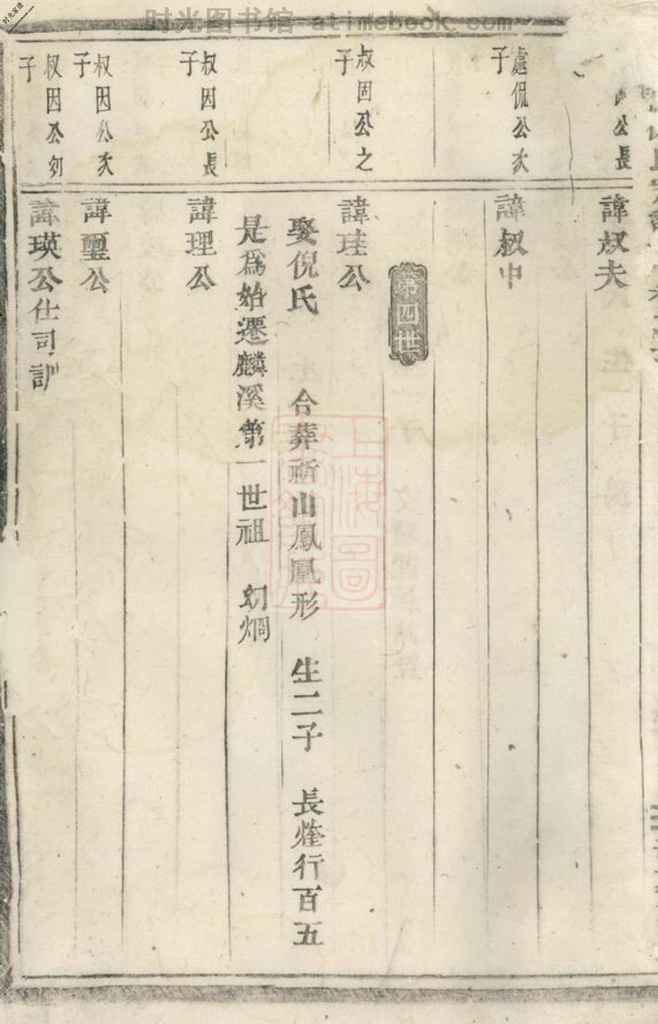 时光图书馆 - atimebook.com
公長
諱叔夫
處侃公次
子
諱叔中
第四世
叔因公之
子
諱珪公
娶倪氏 合葬祈山鳳凰形 生二子 長燧行百五
是為始遷麟溪第一世祖 幼烱
叔因公長
子
諱理公
叔因公次
子
諱璽公
叔因公幼
子
諱瑛公仕司訓
上海圖